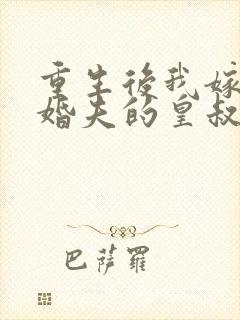 重生後我嫁
婚夫的皇叔
巴薩羅